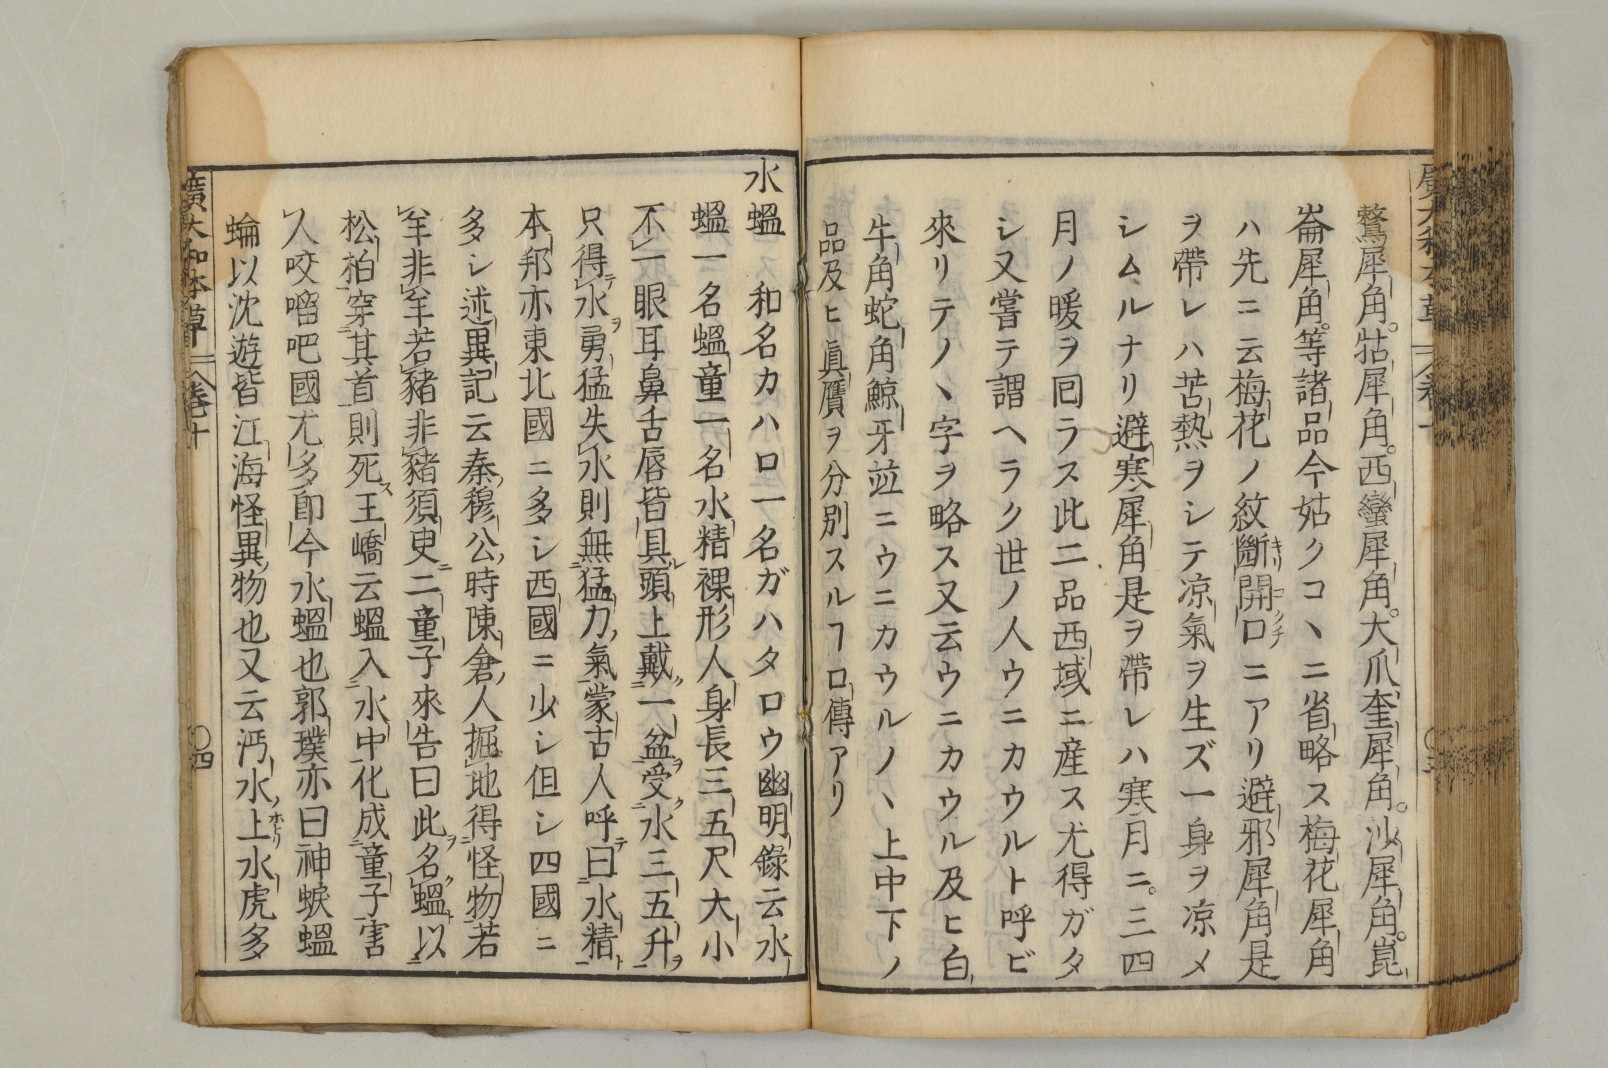 鷖犀角。牯犀角。西蠻犀角。大爪奎犀角。沙犀角。崑
崙犀角。等諸品今姑クコヽニ省略ス梅花犀角
ハ先ニ云梅花ノ紋斷開口ニアリ避邪犀角是
ヲ帶レハ苦熱ヲシテ凉氣ヲ生ズ一身ヲ凉メ
シムルナリ避寒犀角是ヲ帶レハ寒月ニ。三四
月ノ暖ヲ囘ラス此二品西域ニ産ス尤得ガタ
シ又嘗テ謂ヘラク世ノ人ウニカウルト呼ビ
來リテノヽ字ヲ略ス又云ウニカウル及ヒ白
牛角蛇角鯨牙竝ニウニカウルノヽ上中下ノ
品及ヒ眞贋ヲ分別スルフロ傳アリ
水蝹 和名カハロ一名ガハタロウ幽明錄云水
蝹一名蝹童一名水精裸形人身長三五尺大小
不一眼耳鼻舌唇皆具頭上戴一盆受水三五升
只得水勇猛失水則無猛力氣蒙古人呼曰水精
本邦亦東北國ニ多シ西國ニ少シ但シ四國ニ
多シ述異記云秦穆公時陳倉人掘地得怪物若
羊非羊若豬非豬須臾二童子來告曰此名蝹以
松柏穿其首則死王嶠云蝹入水中化成童子害
人咬𠺕吧國尤多卽今水蝹也郭璞亦曰神蜧蝹
蜦以沈遊皆江海怪異物也又云沔水上水虎多
廣大和本草 卷十 〇四